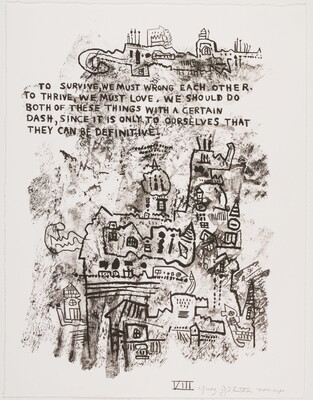 TO SURVIVE, WE MUST WRONG EACH OTHER.
TO THRIVE, WE MUST LOVE. WE SHOULD DO
BOTH OF THESE THINGS WITH A CERTAIN
DASH, SINCE IT IS ONLY TO OURSELVES THAT
THEY CAN BE DEFINITIVE.
VIII